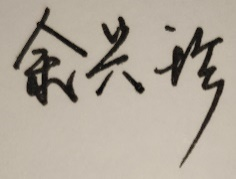 余兴珍